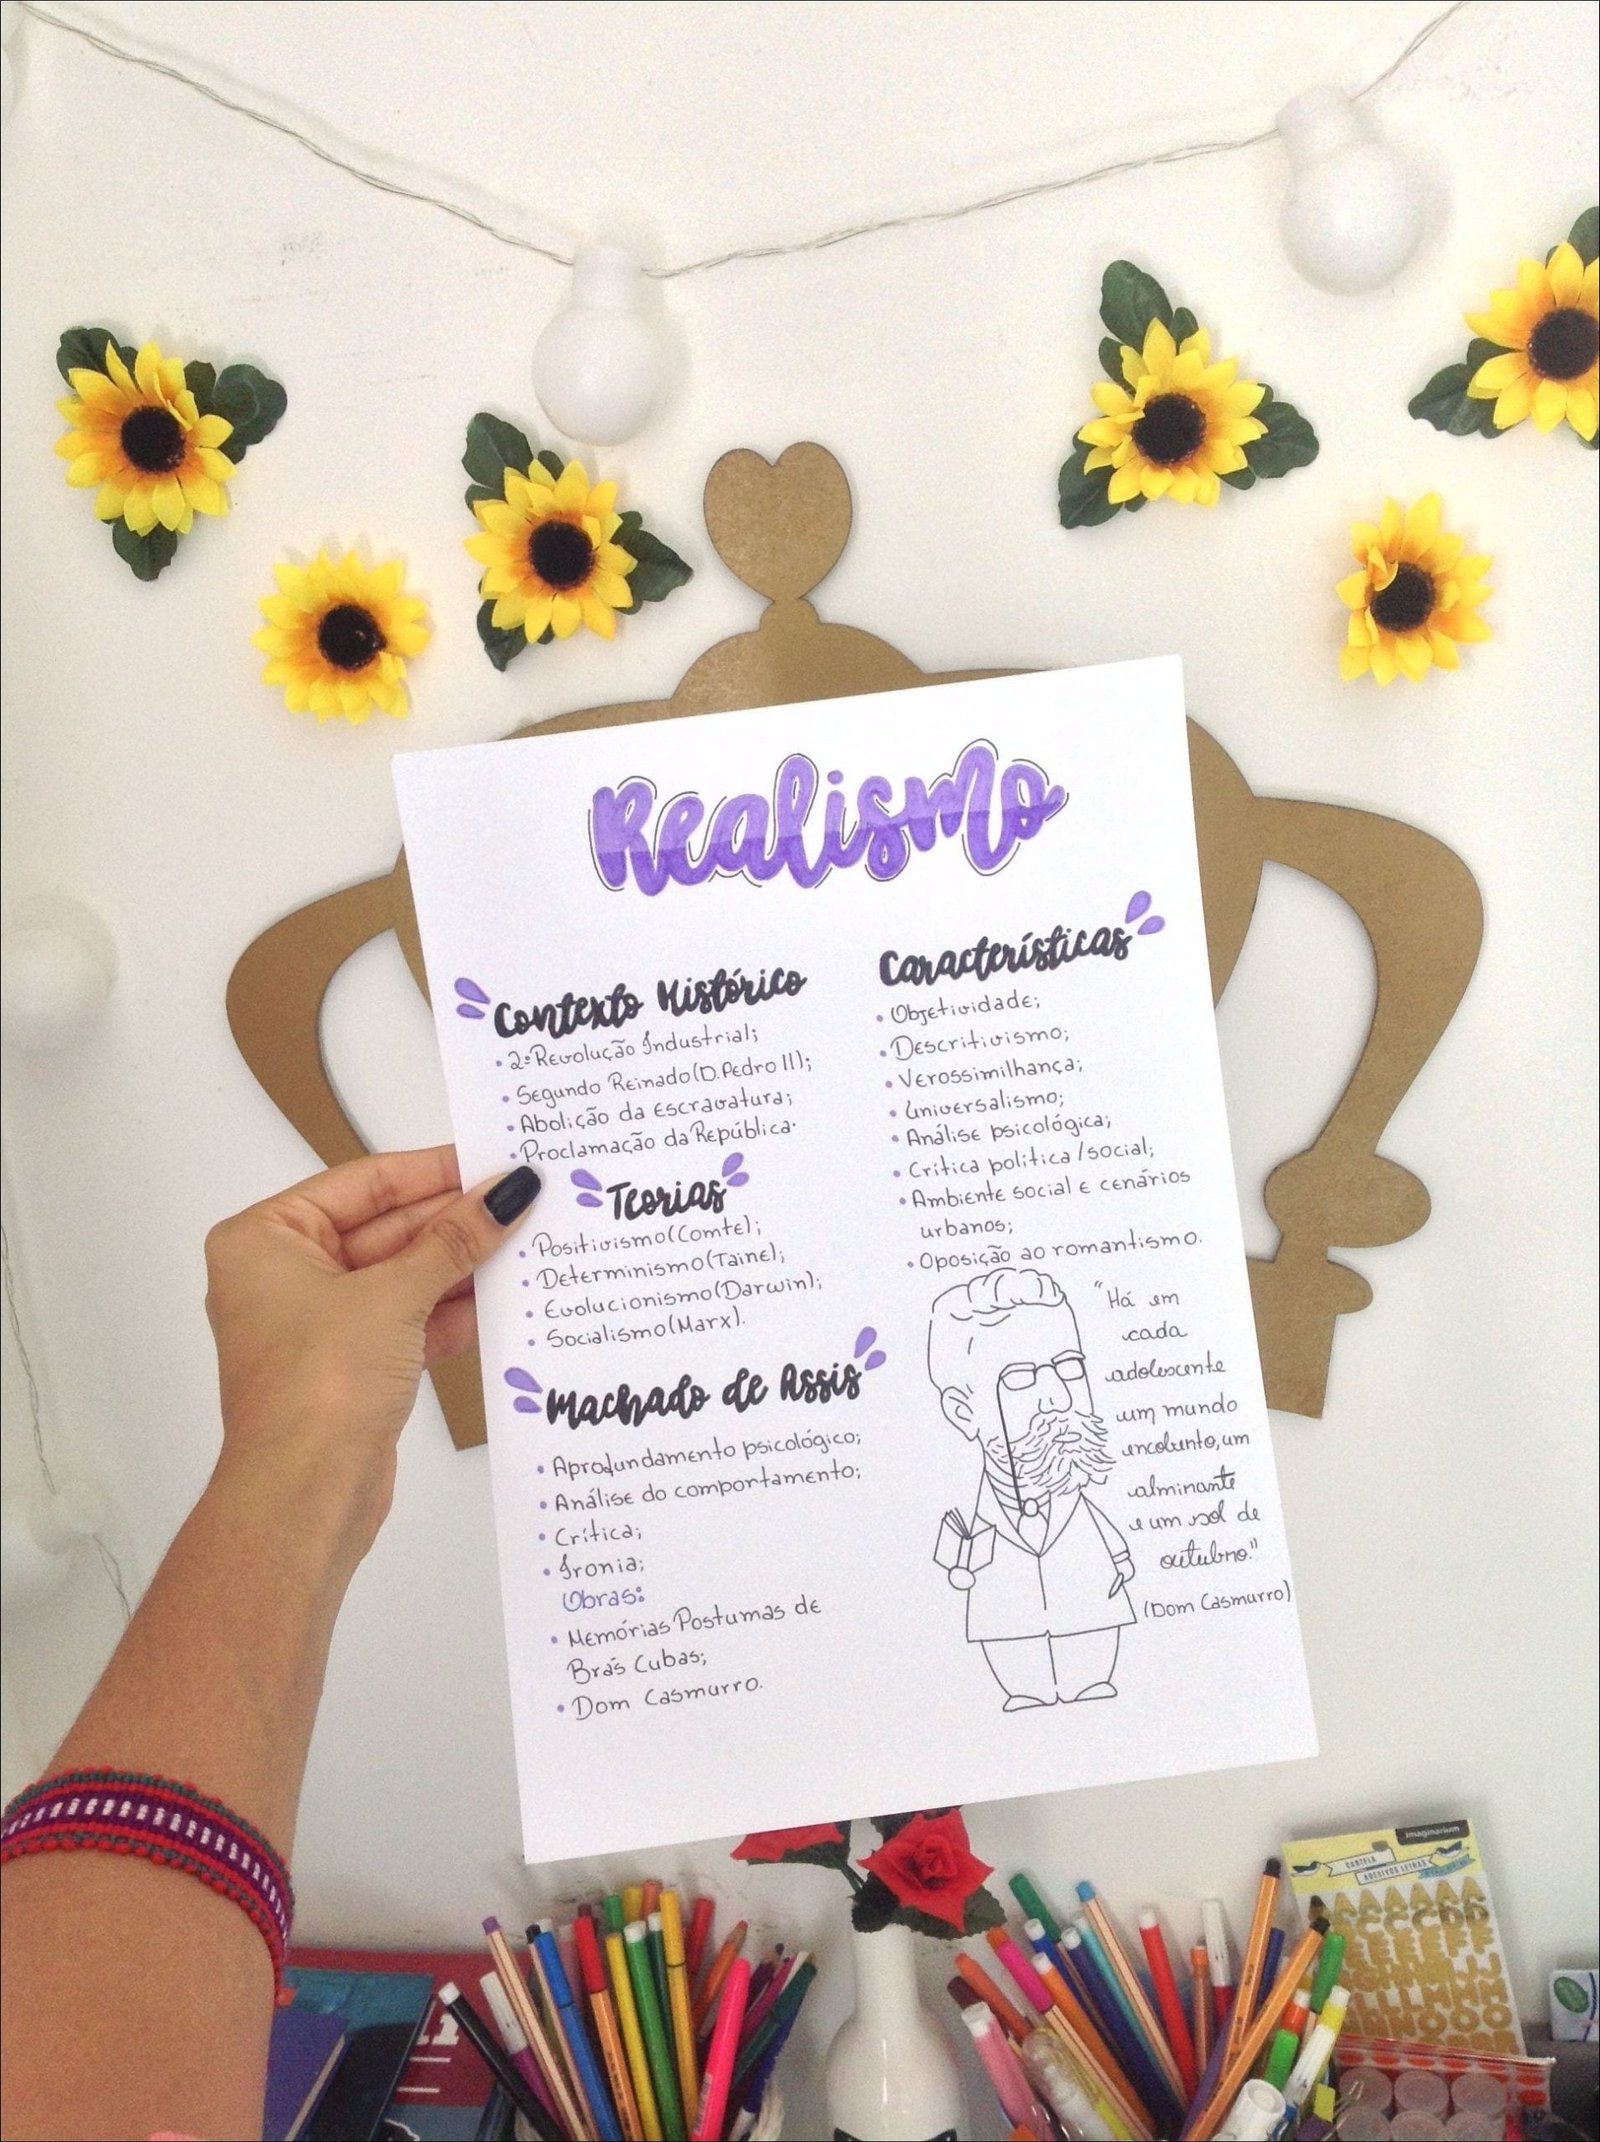 Realismo
Contexto Histórico
• 2ª Revolução Industrial;
• Segundo Reinado (D. Pedro II);
• Abolição da escravatura;
• Proclamação da República.
Teorias
• Positivismo (Comte);
• Determinismo (Taine);
• Evolucionismo (Darwin);
• Socialismo (Marx).
Machado de Assis
• Aprofundamento psicológico;
• Análise do comportamento;
• Crítica;
• Ironia;
Obras:
• Memórias Postumas de
Brás Cubas;
• Dom Casmurro.
Características
• Objetividade;
• Descritivismo;
• Verossimilhança;
• Universalismo;
• Análise psicológica;
• Crítica política/social;
• Ambiente social e cenários
urbanos;
• Oposição ao romantismo.
"Há em
cada
adolescente
um mundo
encoberto, um
alminante
e um sol de
outubro."
(Dom Casmurro)
imaginarium
CARTELA
ADESIVOS LETRAS